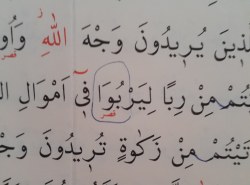 ذِينَ يُرِيدُونَ وَجْهَ اللّٰهِ وَاُو
قصر
يْتُمْ مِنْ رِبًا لِيَرْبُوَا فٖٓى اَمْوَالِ ال
قصر
تَيْتُمْ مِنْ زَكٰوةٍ تُرٖيدُونَ وَجْ